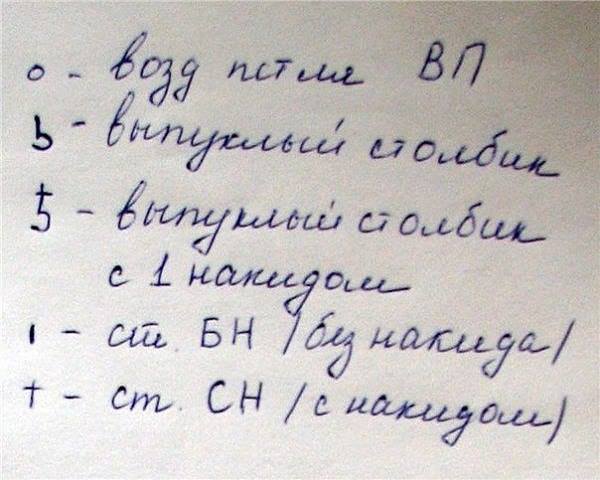 о - возд петля ВП
ь - выпуклый столбик
ƾ - выпуклый столбик
с 1 накидом
ı - ст. БН /без накида/
† - ст. СН /с накидом/